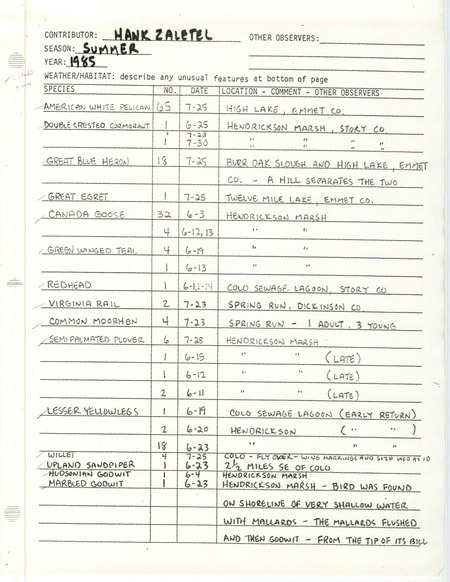 CONTRIBUTOR: HANK ZALETEL OTHER OBSERVERS:
SEASON: SUMMER
YEAR: 1985
WEATHER/HABITAT: describe any unusual features at bottom of page
SPECIES NO. DATE LOCATION - COMMENT - OTHER OBSERVERS
AMERICAN WHITE PELICAN 65 7-25 HIGH LAKE, EMMET CO.
DOUBLE CRESTED CORMORANT 1 6-25 HENDRICKSON MARSH, STORY CO.
" 7-28
1 7-30 " " "
GREAT BLUE HERON 18 7-25 BURR OAK SLOUGH AND HIGH LAKE, EMMET
CO. - A HILL SEPARATES THE TWO
GREAT EGRET 1 7-25 TWELVE MILE LAKE, EMMET CO.
CANADA GOOSE 32 6-3 HENDRICKSON MARSH
4 6-12,13 " "
GREEN WINGED TEAL 4 6-19 " "
1 6-13 " "
REDHEAD 1 6-12-14 COLO SEWAGE LAGOON, STORY CO
VIRGINIA RAIL 2 7-23 SPRING RUN, DICKINSON CO.
COMMON MOORHEN 4 7-23 SPRING RUN - 1 ADULT, 3 YOUNG
SEMIPALMATED PLOVER 6 7-28 HENDRICKSON MARSH
1 6-15 " " (LATE)
1 6-12 " " (LATE)
2 6-11 " " (LATE)
LESSER YELLOWLEGS 1 6-19 COLO SEWAGE LAGOON (EARLY RETURN)
2 6-20 HENDRICKSON ( " " )
18 6-23 " "
WILLET 4 7-25 COLO - FLY OVER - WING MARKINGS AND SIZE USED AS ID
UPLAND SANDPIPER 1 6-23 2½ MILES SE OF COLO
HUDSONIAN GODWIT 1 6-4 HENDRICKSON MARSH
MARBLED GODWIT 1 6-23 HENDRICKSON MARSH - BIRD WAS FOUND
ON SHORELINE OF VERY SHALLOW WATER
WITH MALLARDS - THE MALLARDS FLUSHED
AND THEN GODWIT - FROM THE TIP OF ITS BILL